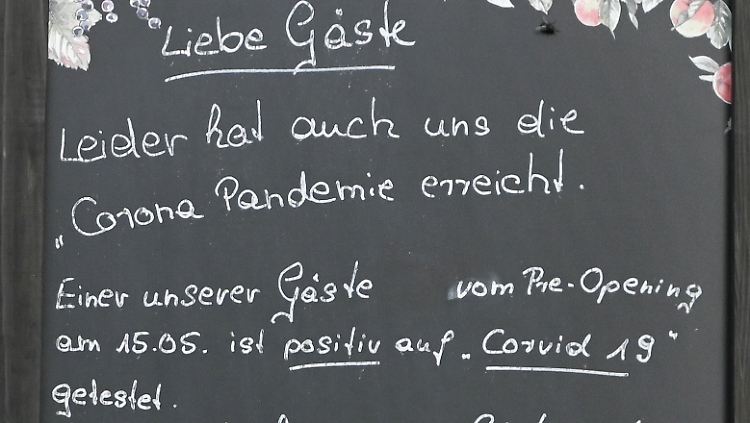 Liebe Gäste
Leider hat auch uns die
„Corona Pandemie erreicht.
Einer unserer Gäste vom Pre-Opening
am 15.05. ist positiv auf „Corvid 19"
getestet.